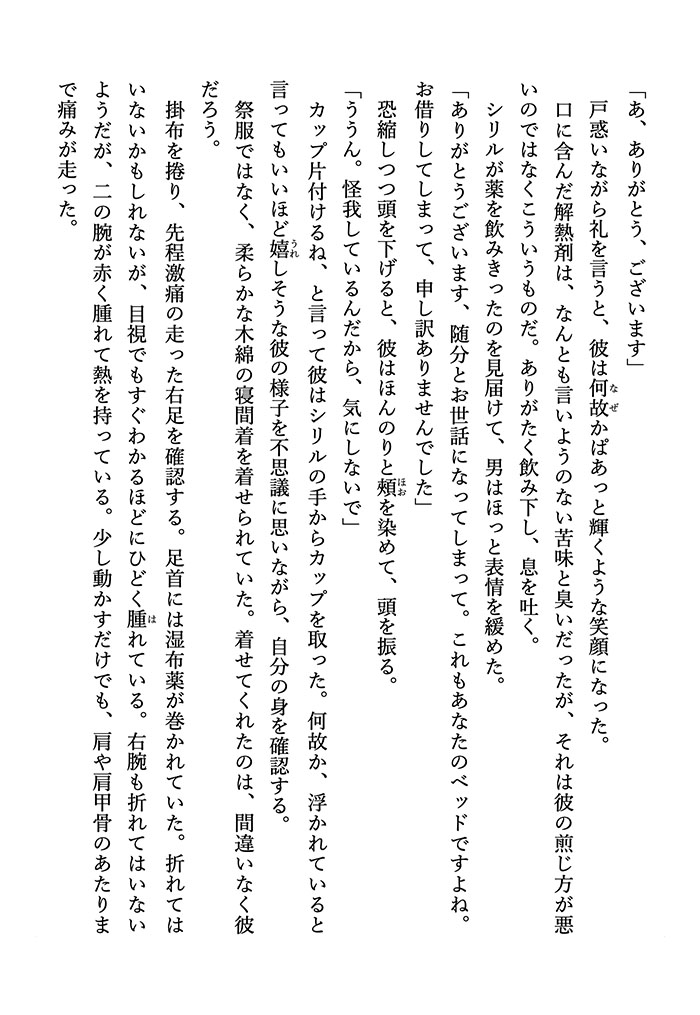 「あ、ありがとう、ございます」
戸惑いながら礼を言うと、彼は何故かぱあっと輝くような笑顔になった。
口に含んだ解熱剤は、なんとも言いようのない苦味と臭いだったが、それは彼の煎じ方が悪
いのではなくこういうものだ。ありがたく飲み下し、息を吐く。
シリルが薬を飲みきったのを見届けて、男はほっと表情を緩めた。
「ありがとうございます、随分とお世話になってしまって。これもあなたのベッドですよね。
お借りしてしまって、申し訳ありませんでした」
恐縮しつつ頭を下げると、彼はほんのりと頰を染めて、頭を振る。
「ううん。怪我しているんだから、気にしないで」
カップ片付けるね、と言って彼はシリルの手からカップを取った。何故か、浮かれていると
言ってもいいほど嬉しそうな彼の様子を不思議に思いながら、自分の身を確認する。
祭服ではなく、柔らかな木綿の寝間着を着せられていた。着せてくれたのは、間違いなく彼
だろう。
掛布を捲り、先程激痛の走った右足を確認する。足首には湿布薬が巻かれていた。折れては
いないかもしれないが、目視でもすぐわかるほどにひどく腫れている。右腕も折れてはいない
ようだが、二の腕が赤く腫れて熱を持っている。少し動かすだけでも、肩や肩甲骨のあたりま
で痛みが走った。